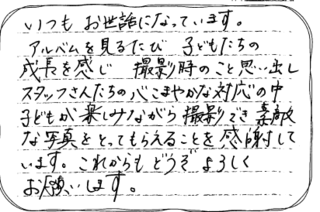 いつも お世話になっています。
アルバムを見るたび 子どもたちの
成長を感じ 撮影時のこと思い出し
スタッフさんたちの心こまやかな対応の中
子どもが楽しみながら撮影でき 素敵
な写真をとってもらえることを感謝して
います。これからも どうぞ よろしく
お願いします。